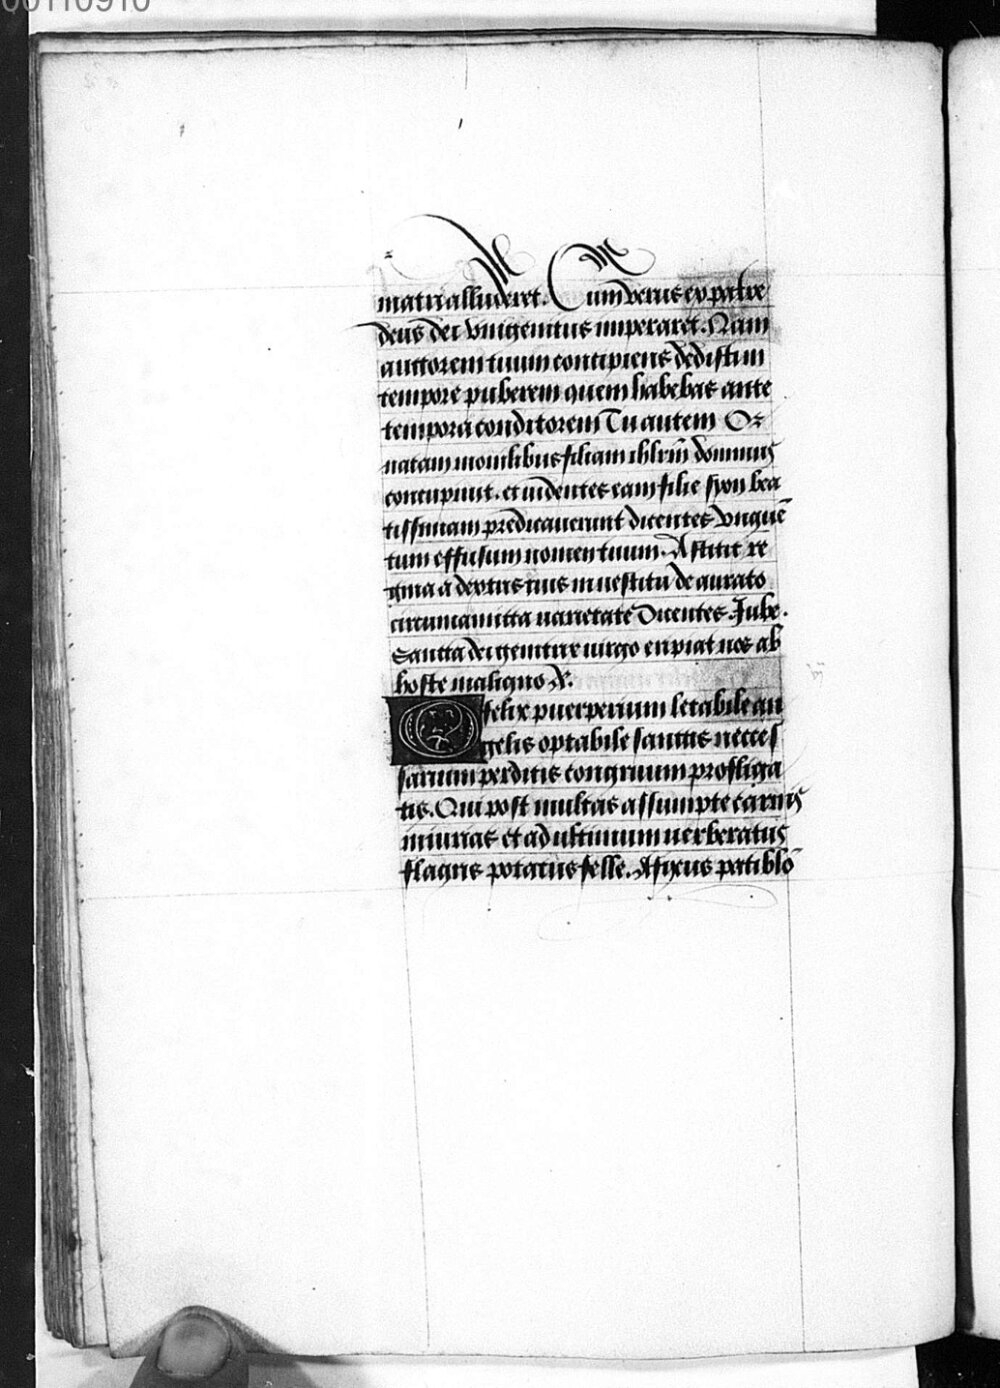 00110910
matri alluderet. Cum verus ex patre
deus dei vnigenitus imperaret. Nam
auctorem tuum concipiens dedisti in
tempore puberem quem habebas ante
tempora conditorem Tu autem Or
natam monilibus filiam ihlrm̄ dominus
concupiuit. et uidentes eam filie syon bea
tissimam predicauerunt dicentes vnguē
tum effusum nomen tuum. Astitit re
gina a dextris tuis in uestitu deaurato
circumamicta uarietate Dicentes. Jube.
Sancta dei genitrix uirgo eripiat nos ab
hoste maligno &.
O felix puerperium letabile an
gelis optabile sanctis neces
sarium perditis congruum profliga
tis. Qui post multas assumpte carnis
iniurias et ad ultimum uerberatus
flagris potatus felle. Affixus patiblo